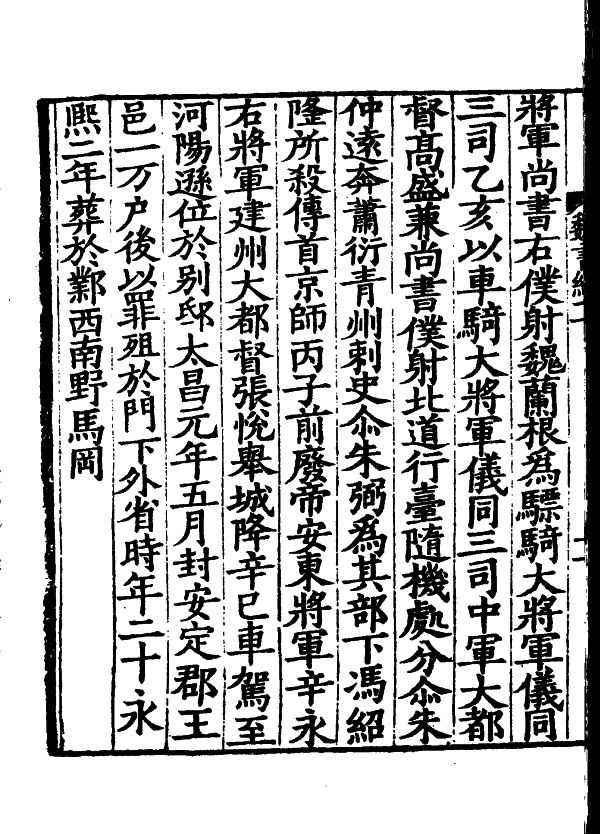 將軍尚書右僕射魏蘭根爲驃騎大將軍儀同
三司乙亥以車騎大將軍儀同三司中軍大都
督高盛兼尚書僕射北道行臺隨機處分尒朱
仲遠奔蕭衍青州刺史尒朱弼爲其部下馮紹
隆所殺傳首京師丙子前廢帝安東將軍辛永
右將軍建州大都督張悅舉城降辛巳車駕至
河陽遜位於别邸太昌元年五月封安定郡王
邑一万户後以罪殂於門下外省時年二十永
熙二年葬於鄴西南野馬岡